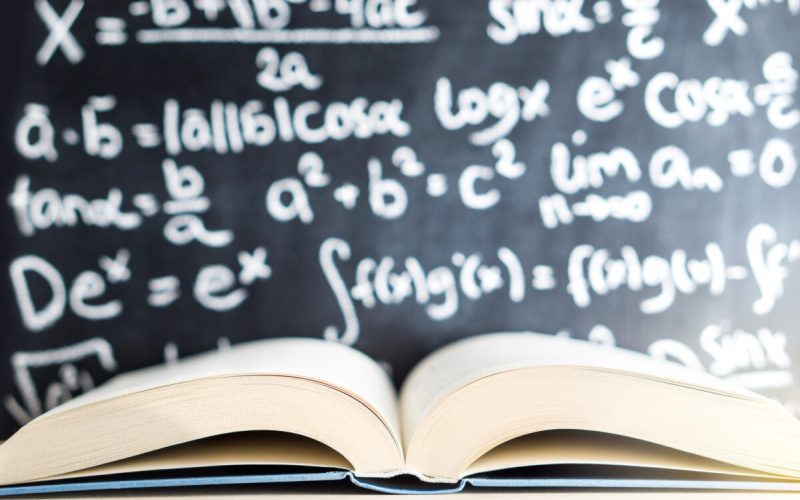 X = -b+√b²-4ac
2a
sinα = c
ā·b̄ = |ā||b̄|cosα logx eˣ cosα = a/c
tanα = b/a a² + b² = c² lim aₙ = 0
n→∞
Deˣ = eˣ ∫f(x)g'(x) = f(x)g(x) - ∫f'
sinx